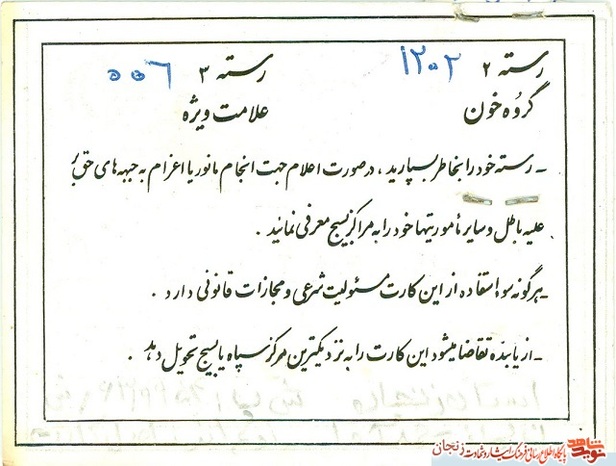 رسته ۲ ۱۲۰۲ رسته ۳ ۵۵۶
گروه خون علامت ویژه
- رسته خود را بخاطر بسپارید ، در صورت اعلام جهت انجام مانور یا اعزام به جبهه های حق بر
علیه باطل و سایر مأموریتها خود را به مراکز بسیج معرفی نمائید .
- هرگونه سوء استفاده از این کارت مسئولیت شرعی و مجازات قانونی دارد .
- از یابنده تقاضا میشود این کارت را به نزدیکترین مرکز سپاه یا بسیج تحویل دهد .
نوید شاهد
پایگاه اطلاع رسانی فرهنگ ایثار و شهادت زنجان